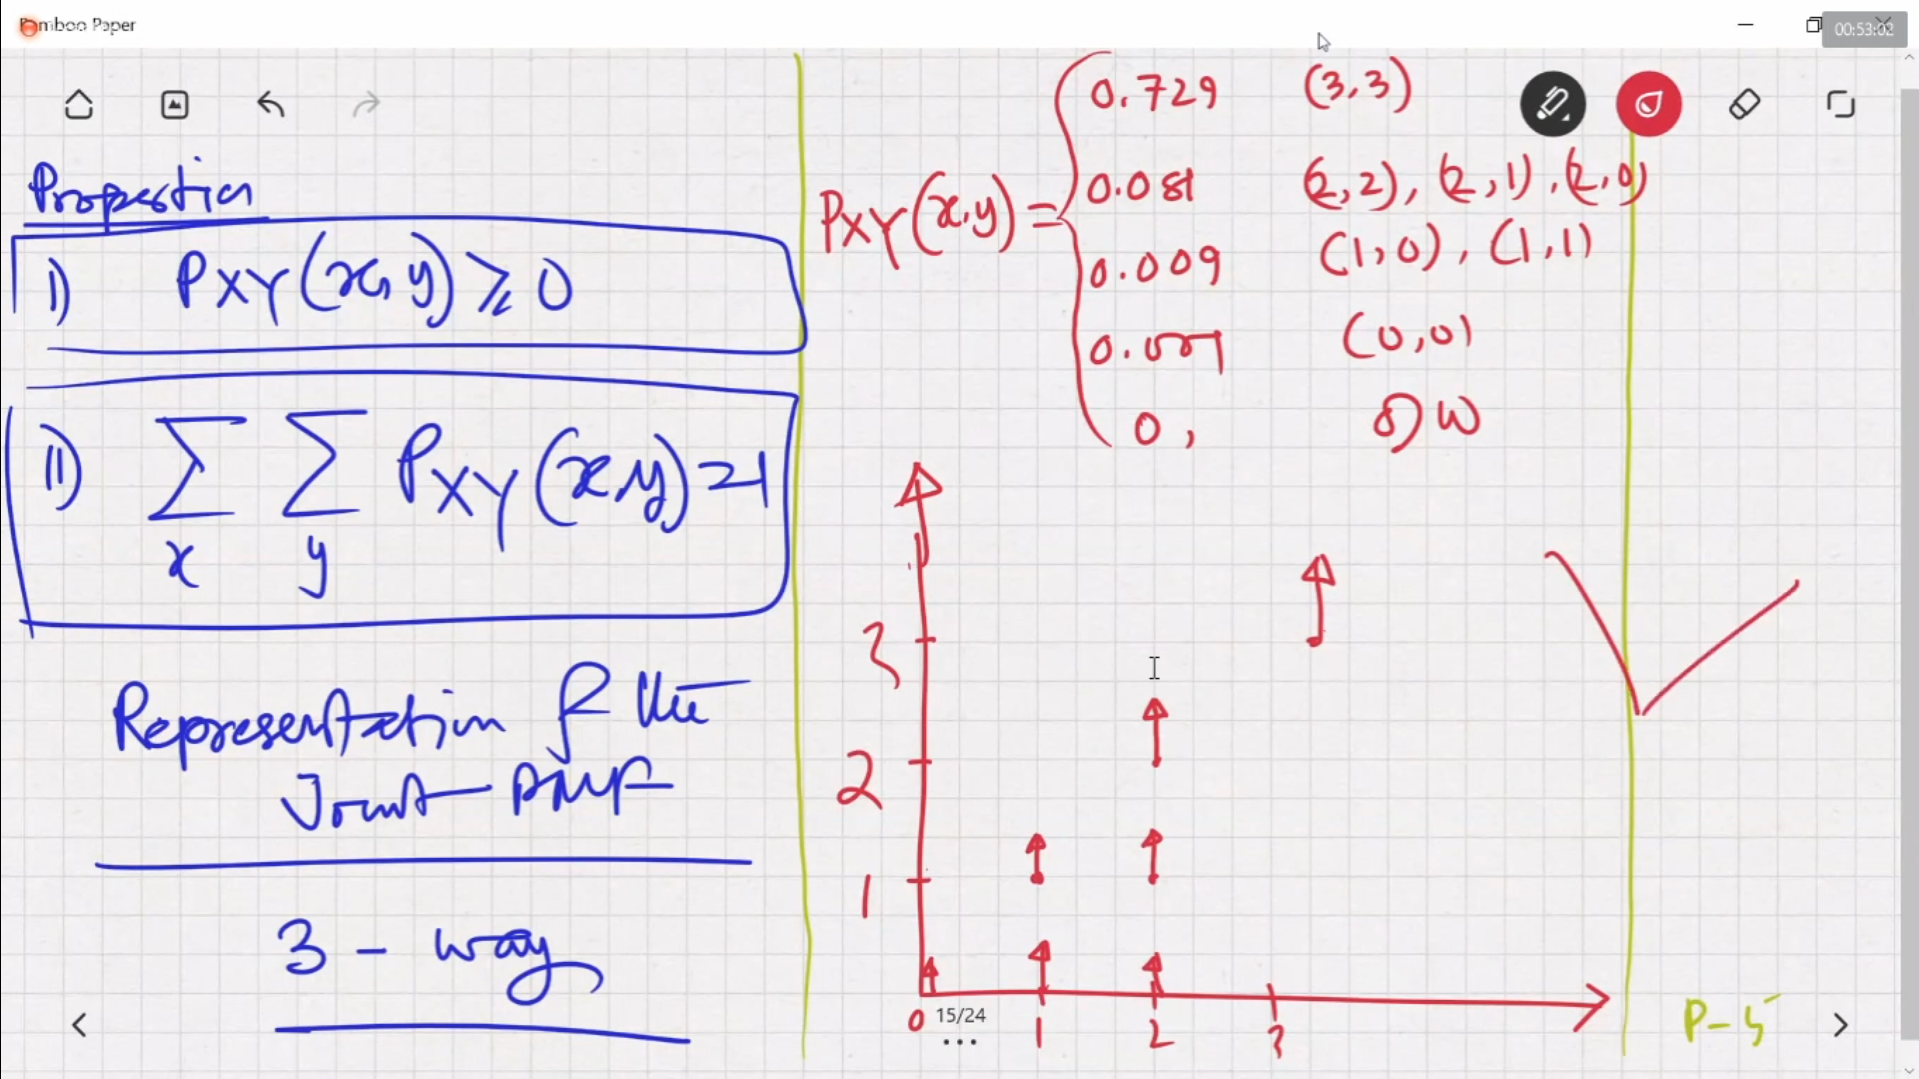 Bamboo Paper
00:53:02
Properties
I) PXY(x,y) ≥ 0
II) Σ Σ PXY(x,y) = 1
x y
Representation of the
Joint PMF
3 - way
PXY(x,y) =
0.729 (3,3)
0.081 (2,2), (2,1), (2,0)
0.009 (1,0), (1,1)
0.001 (0,0)
0, OW
3
2
1
0 1 2 3
15/24
P-5